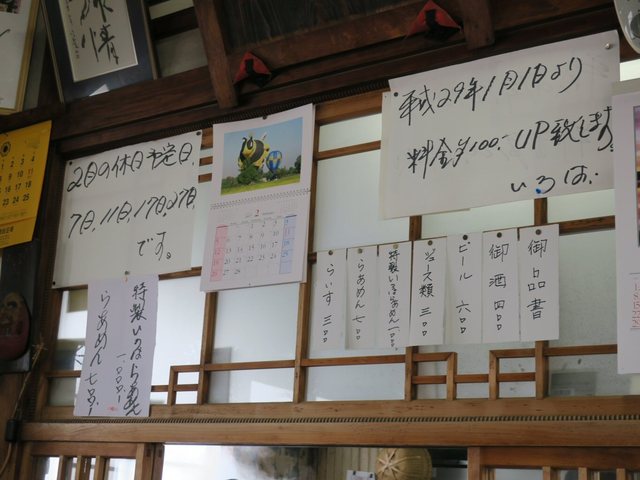 平成29年1月1日より
料金¥100.- UP致します。
いろは.
2月の休日予定日.
7日.11日.17日.27日.
です。
御品書
御酒 四〇〇
ビール 六〇〇
ジュース類 三〇〇
特製いろはらあめん 一、〇〇〇
らあめん 七〇〇
らいす 三〇〇
特製いろはらあめん
一、〇〇〇.-
らあめん 七〇〇.-
2